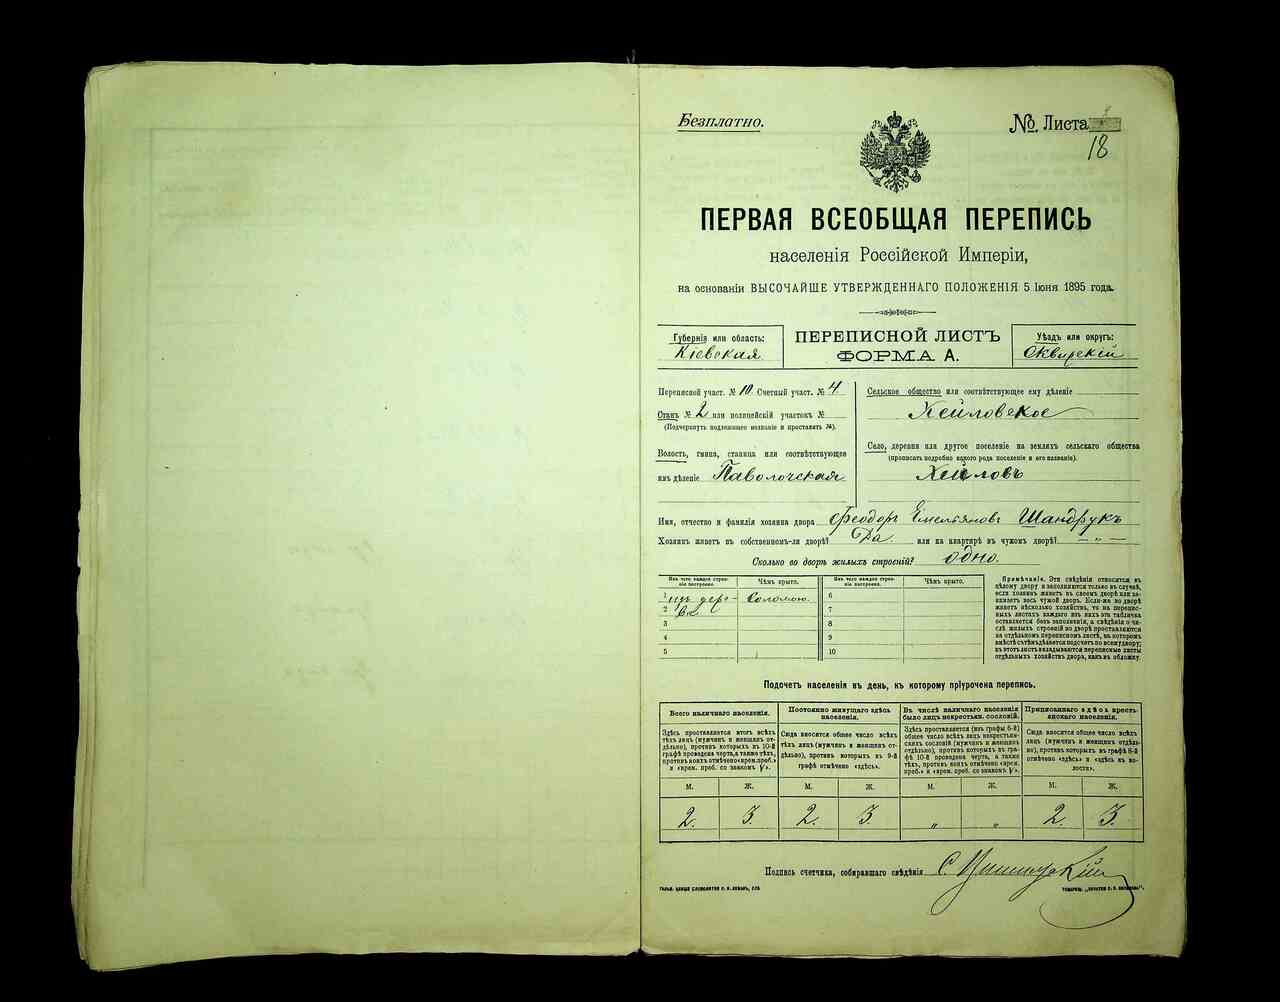 Безплатно.
№ Листа
18
ПЕРВАЯ ВСЕОБЩАЯ ПЕРЕПИСЬ
населенія Россійской Имперіи,
на основаніи ВЫСОЧАЙШЕ УТВЕРЖДЕННАГО ПОЛОЖЕНІЯ 5 Іюня 1895 года.
Губернія или область:
Кіевская
ПЕРЕПИСНОЙ ЛИСТЪ
ФОРМА А.
Уѣздъ или округъ:
Сквирскій
Переписной участ. № 10 Счетный участ. № 4
Станъ № 2 или полицейскій участокъ №
(Подчеркнуть подлежащее названіе и проставить №).
Волость, гмина, станица или соотвѣтствующее
имъ дѣленіе Паволочская
Сельское общество или соотвѣтствующее ему дѣленіе
Хейловское
Село, деревня или другое поселеніе на земляхъ сельскаго общества
(прописать подробно какого рода поселеніе и его названіе).
Хейловъ
Имя, отчество и фамилія хозяина двора Феодоръ Емельяновъ Шандрукъ
Хозяинъ живетъ въ собственномъ-ли дворѣ? Да. или на квартирѣ въ чужомъ дворѣ? — „ —
Сколько во дворѣ жилыхъ строеній? одно.
Изъ чего каждое строеніе построено.
Чѣмъ крыто.
Изъ чего каждое строеніе построено.
Чѣмъ крыто.
1 изъ дере- Соломою. 6
2 ва. 7
3 8
4 9
5 10
Примѣчаніе. Эти свѣдѣнія относятся къ
цѣлому двору и заполняются только въ случаѣ,
если хозяинъ живетъ въ своемъ дворѣ или занимаетъ
весь чужой дворъ. Если-же во дворѣ
живетъ нѣсколько хозяйствъ, то на переписныхъ
листахъ каждаго изъ нихъ эта табличка
оставляется безъ заполненія, а свѣдѣнія о числѣ
жилыхъ строеній во дворѣ проставляются
на отдѣльномъ переписномъ листѣ, на которомъ
вмѣстѣ съ тѣмъ дѣлается подсчетъ по всему двору;
въ этотъ листъ вкладываются переписные листы
отдѣльныхъ хозяйствъ двора, какъ въ обложку.
Подсчетъ населенія въ день, къ которому пріурочена перепись.
Всего наличнаго населенія.
Постоянно живущаго здѣсь населенія.
Въ числѣ наличнаго населенія было лицъ некрестьян. сословій.
Приписаннаго здѣсь крестьянскаго населенія.
Здѣсь проставляется итогъ всѣхъ
тѣхъ лицъ (мужчинъ и женщинъ отдѣльно),
противъ которыхъ въ 10-й
графѣ проведена черта, а также тѣхъ,
противъ коихъ отмѣчено «врем. преб.»
и «врем. преб. со знакомъ V».
Сюда вносится общее число всѣхъ
тѣхъ лицъ (мужчинъ и женщинъ отдѣльно),
противъ которыхъ въ 9-й
графѣ отмѣчено «здѣсь».
Здѣсь проставляется (изъ графы 6-й)
общее число всѣхъ лицъ некрестьянскихъ
сословій (мужчинъ и женщинъ
отдѣльно), противъ которыхъ въ графѣ
10-й проведена черта, а также
тѣхъ, противъ коихъ отмѣчено «врем.
преб.» и «врем. преб. со знакомъ V».
Сюда вносится общее число всѣхъ
лицъ (мужчинъ и женщинъ отдѣльно),
противъ которыхъ въ графѣ 8-й
отмѣчено «здѣсь» и «здѣсь въ волости».
М. Ж. М. Ж. М. Ж. М. Ж.
2. 3. 2. 3. „ „ 2. 3.
Подпись счетчика, собиравшаго свѣдѣнія С.